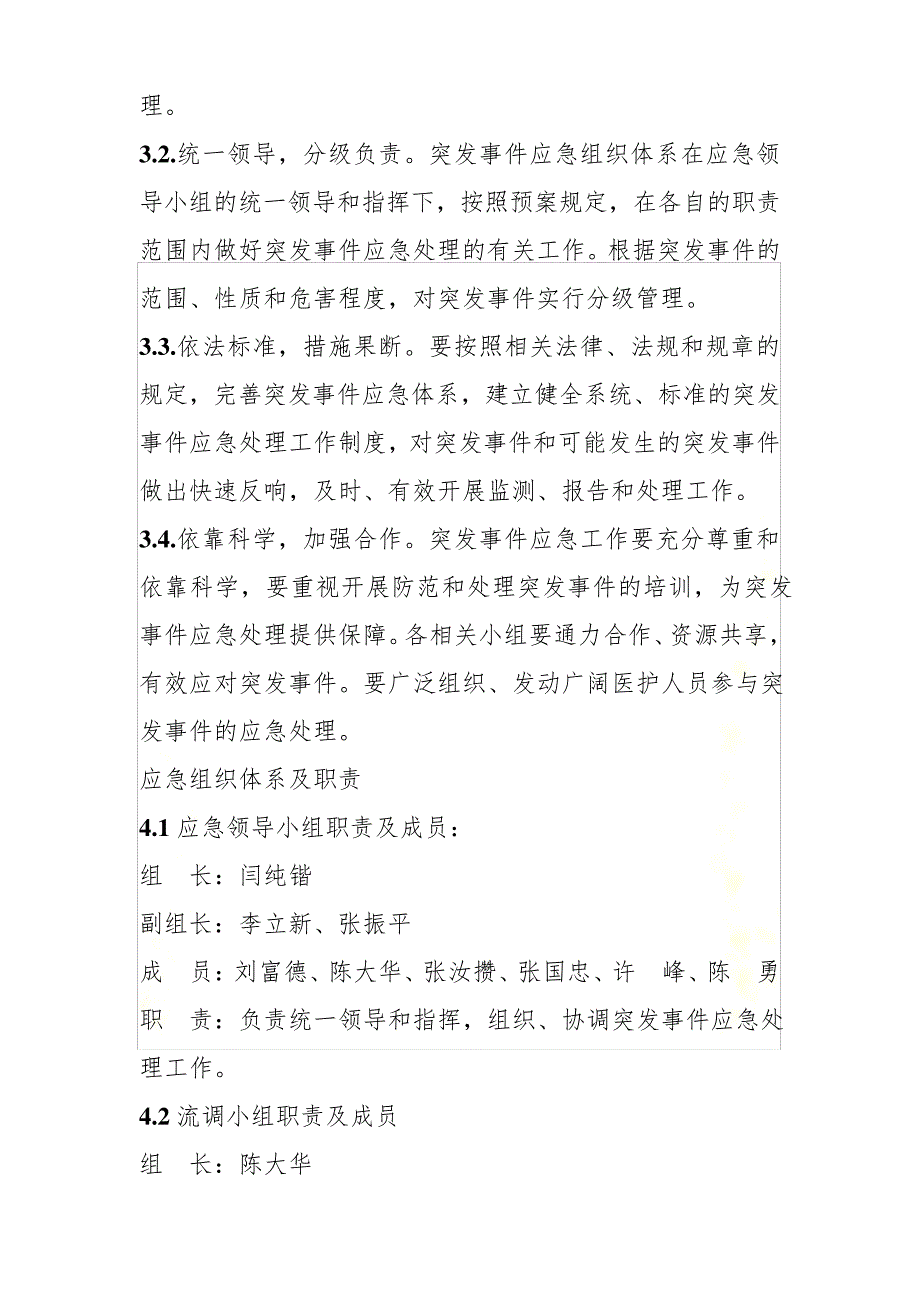 理。
3.2.统一领导，分级负责。突发事件应急组织体系在应急领
导小组的统一领导和指挥下，按照预案规定，在各自的职责
范围内做好突发事件应急处理的有关工作。根据突发事件的
范围、性质和危害程度，对突发事件实行分级管理。
3.3.依法标准，措施果断。要按照相关法律、法规和规章的
规定，完善突发事件应急体系，建立健全系统、标准的突发
事件应急处理工作制度，对突发事件和可能发生的突发事件
做出快速反响，及时、有效开展监测、报告和处理工作。
3.4.依靠科学，加强合作。突发事件应急工作要充分尊重和
依靠科学，要重视开展防范和处理突发事件的培训，为突发
事件应急处理提供保障。各相关小组要通力合作、资源共享，
有效应对突发事件。要广泛组织、发动广阔医护人员参与突
发事件的应急处理。
应急组织体系及职责
4.1 应急领导小组职责及成员：
组　长：闫纯锴
副组长：李立新、张振平
成　员：刘富德、陈大华、张汝攒、张国忠、许　峰、陈　勇
职　责：负责统一领导和指挥，组织、协调突发事件应急处
理工作。
4.2 流调小组职责及成员
组　长：陈大华